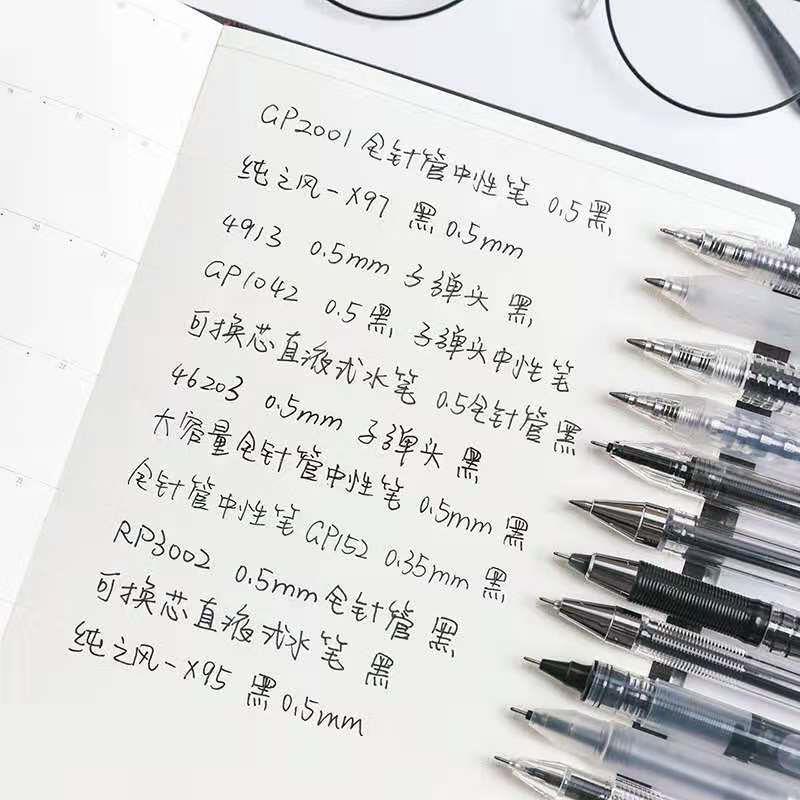 GP2001 全针管中性笔 0.5 黑
纯之风-X97 黑 0.5mm
4913 0.5mm 子弹头 黑
GP1042 0.5 黑 子弹头中性笔
可换芯直液式水笔 0.5全针管黑
46203 0.5mm 子弹头 黑
大容量全针管中性笔 0.5mm 黑
全针管中性笔 GP152 0.35mm 黑
RP3002 0.5mm全针管 黑
可换芯直液式水笔 黑
纯之风-X95 黑 0.5mm